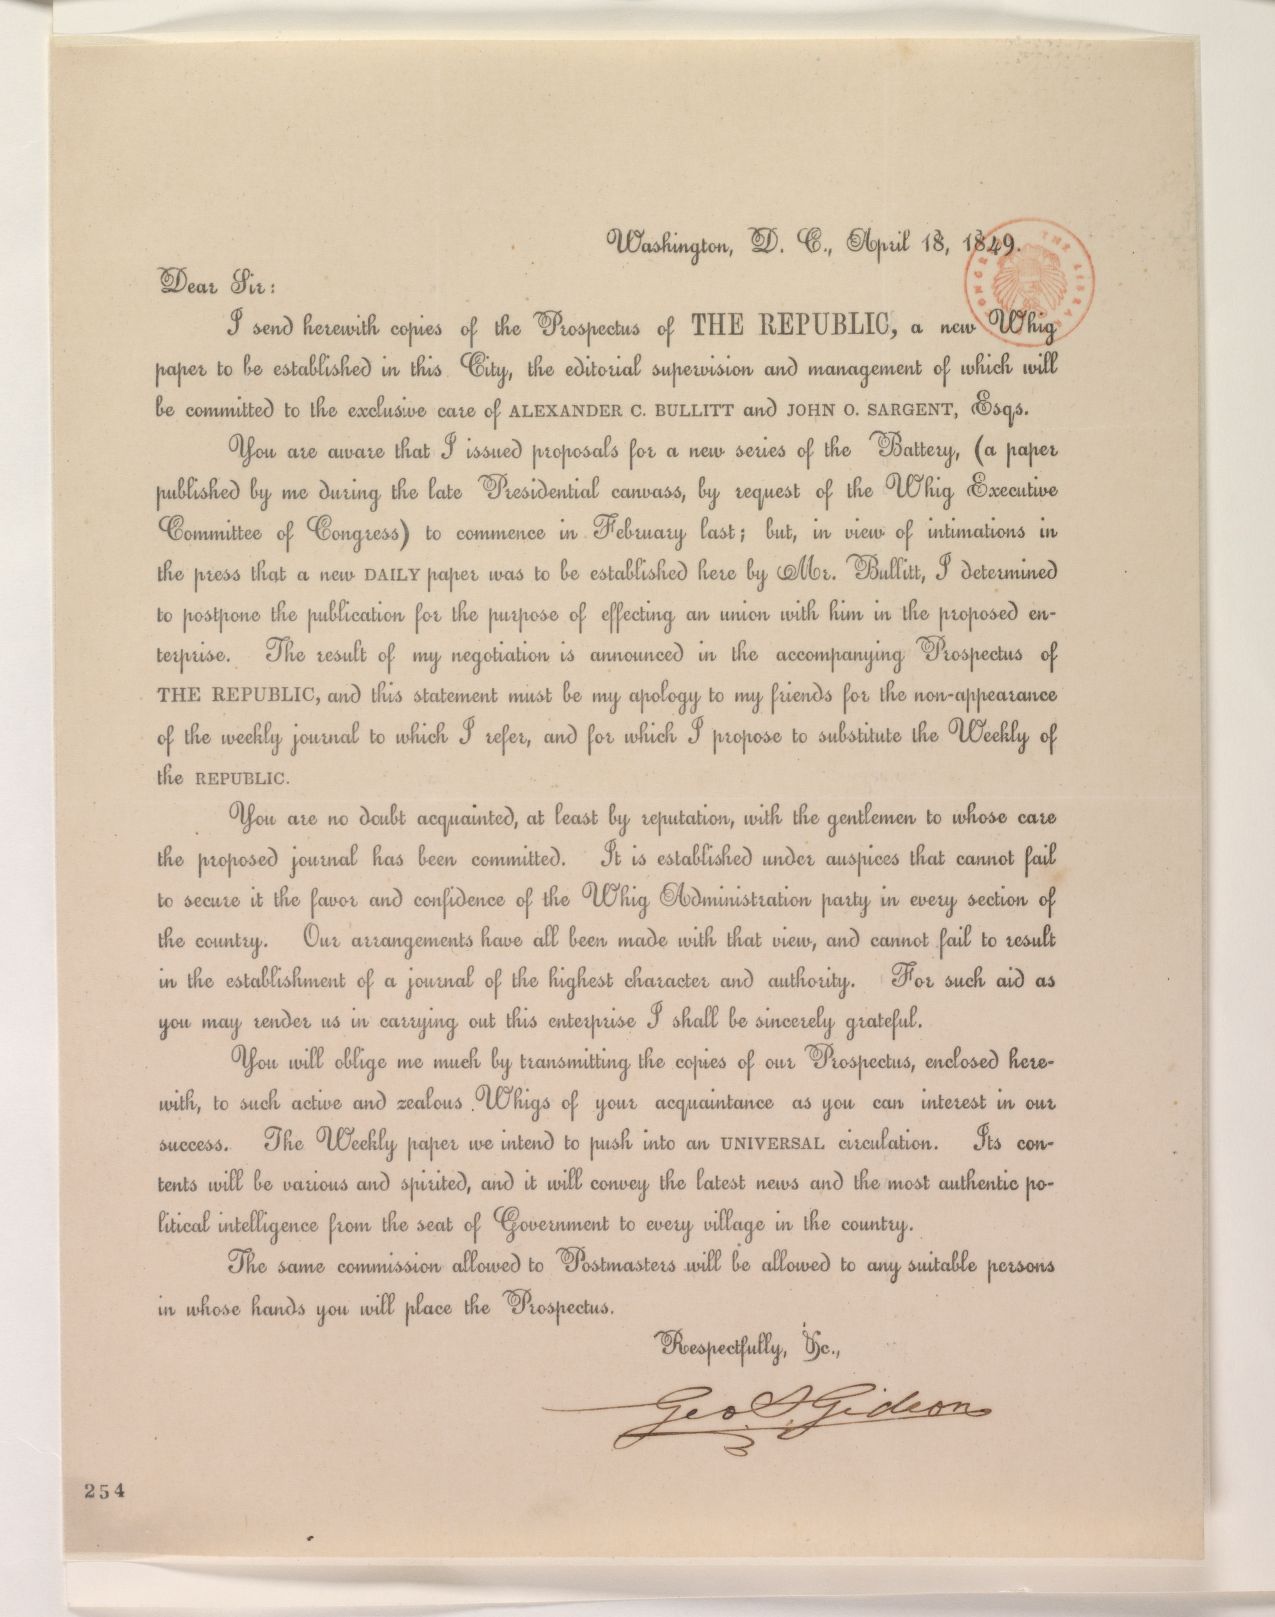 Washington, D. C., April 13, 1849.
Dear Sir:
I send herewith copies of the Prospectus of THE REPUBLIC, a new Whig
paper to be established in this City, the editorial supervision and management of which will
be committed to the exclusive care of ALEXANDER C. BULLITT and JOHN O. SARGENT, Esqs.
You are aware that I issued proposals for a new series of the Battery, (a paper
published by me during the late Presidential canvass, by request of the Whig Executive
Committee of Congress) to commence in February last; but, in view of intimations in
the press that a new DAILY paper was to be established here by Mr. Bullitt, I determined
to postpone the publication for the purpose of effecting an union with him in the proposed en-
terprise. The result of my negotiation is announced in the accompanying Prospectus of
THE REPUBLIC, and this statement must be my apology to my friends for the non-appearance
of the weekly journal to which I refer, and for which I propose to substitute the Weekly of
the REPUBLIC.
You are no doubt acquainted, at least by reputation, with the gentlemen to whose care
the proposed journal has been committed. It is established under auspices that cannot fail
to secure it the favor and confidence of the Whig Administration party in every section of
the country. Our arrangements have all been made with that view, and cannot fail to result
in the establishment of a journal of the highest character and authority. For such aid as
you may render us in carrying out this enterprise I shall be sincerely grateful.
You will oblige me much by transmitting the copies of our Prospectus, enclosed here-
with, to such active and zealous Whigs of your acquaintance as you can interest in our
success. The Weekly paper we intend to push into an UNIVERSAL circulation. Its con-
tents will be various and spirited, and it will convey the latest news and the most authentic po-
litical intelligence from the seat of Government to every village in the country.
The same commission allowed to Postmasters will be allowed to any suitable persons
in whose hands you will place the Prospectus.
Respectfully, &c.,
Geo. S. Gideon
254